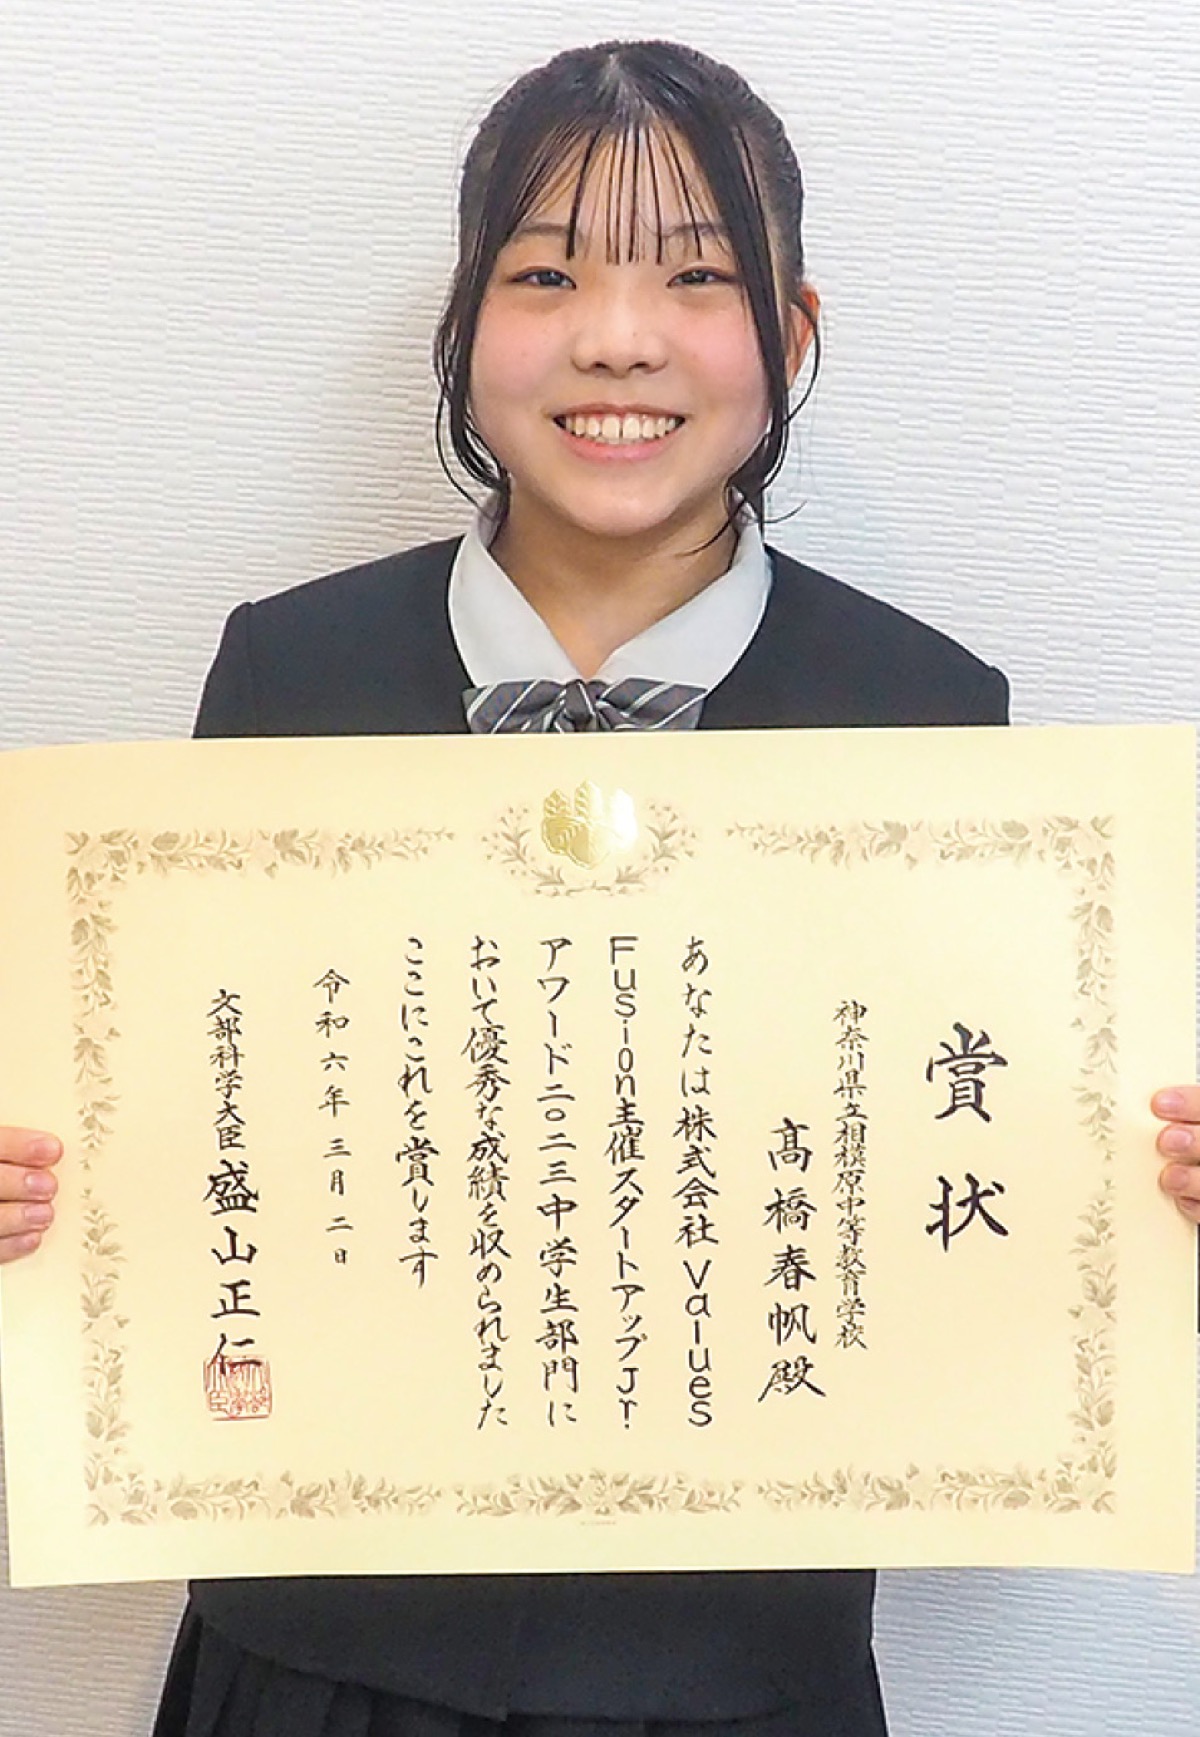 賞状
神奈川県立相模原中等教育学校
髙橋春帆殿
あなたは株式会社Values
Fusion主催スタートアップJr
アワード二〇二三中学生部門に
おいて優秀な成績を収められました
ここにこれを賞します
令和六年三月二日
文部科学大臣 盛山正仁